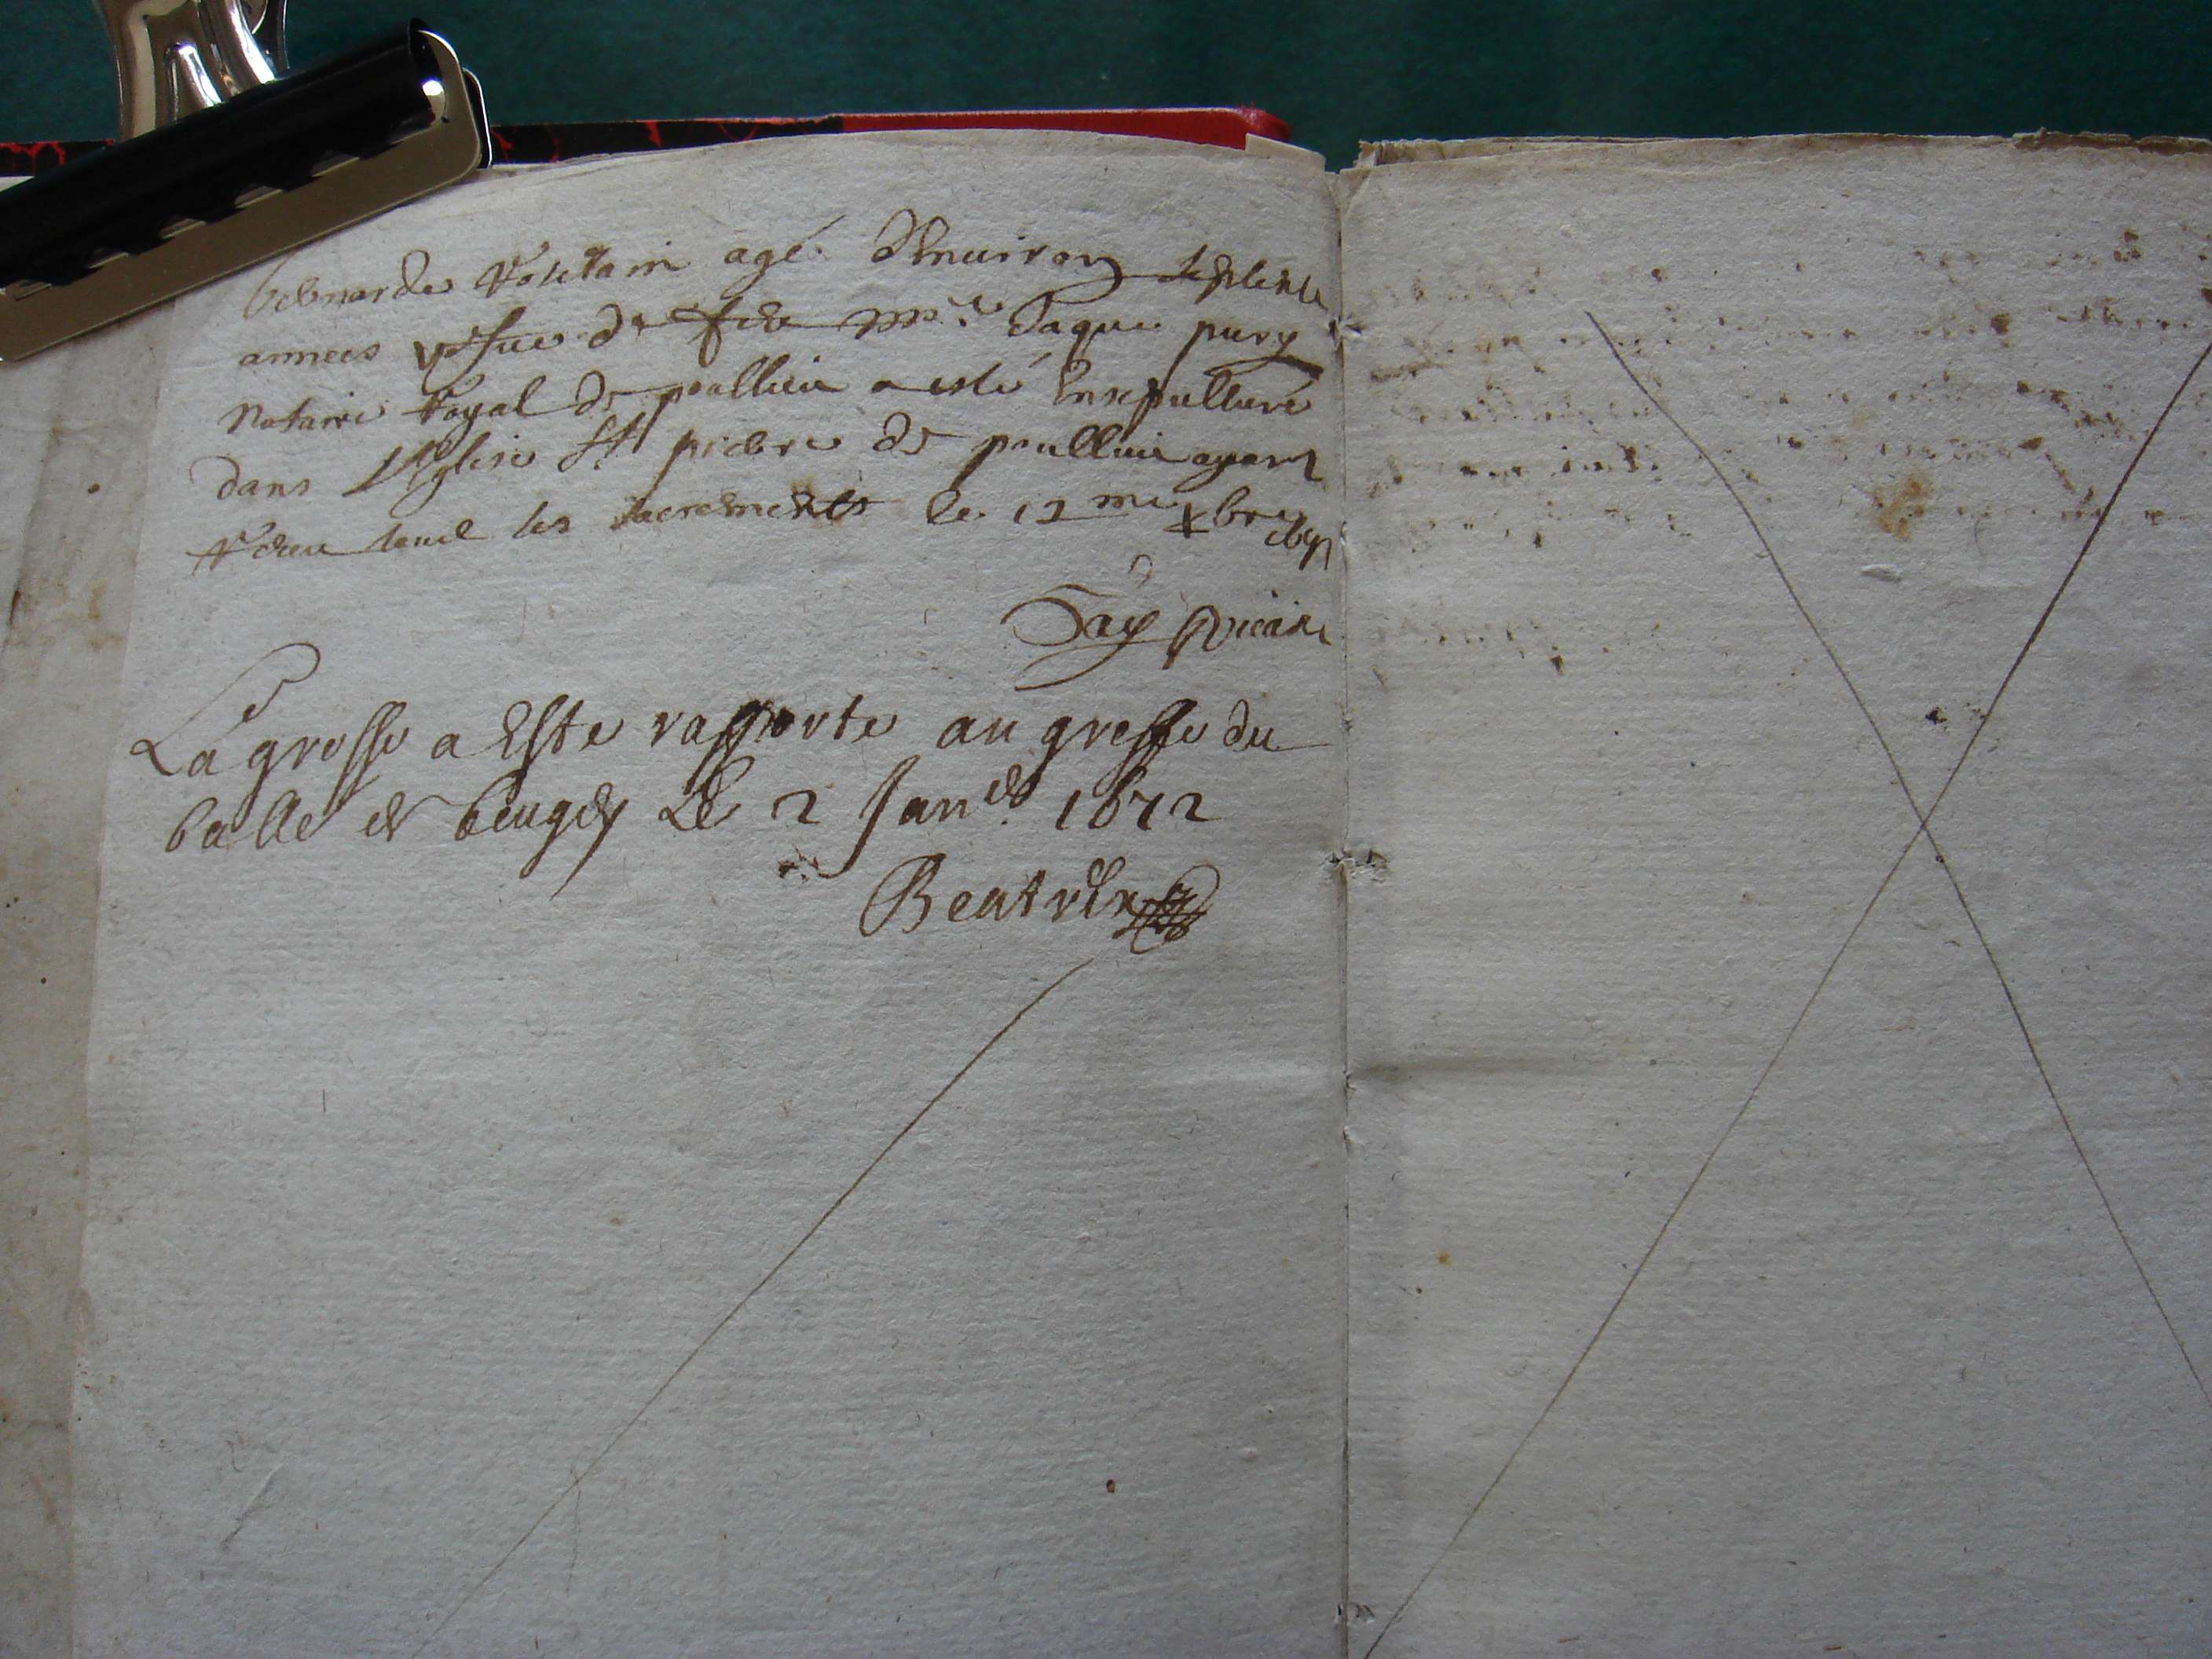 bernarde Rostain agé d'Enuiron septente
annees vefue de feu Mr. Jaque pury
notaire Royal de poullieu a esté Ensepulturé
dans l'Eglise St pierre de poullieu ayant
receu tout les sacrements le 12me xbre
Jay vicaire
La grosse a Este rapporte au greffe du
balle de beugey Le 2 Janer 1672
Beatrix